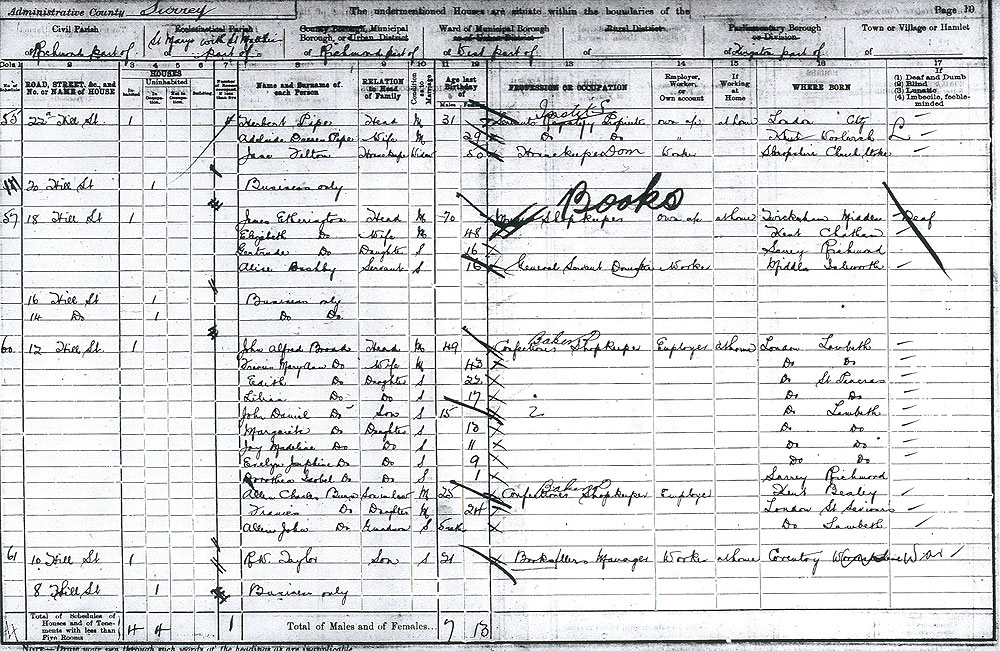 Administrative County Surrey The undermentioned Houses are situate within the boundaries of the Page 10
Civil Parish Ecclesiastical Parish County Borough, Municipal Borough, or Urban District Ward of Municipal Borough or Urban District Rural District Parliamentary Borough or Division Town or Village or Hamlet
of Richmond part of St Marys with St part of of Richmond part of of West part of of of Kingston part of of
ROAD, STREET, &c., and No. or NAME of HOUSE HOUSES Inhabited Uninhabited Building Name and Surname of each Person RELATION to Head of Family Condition as to Marriage Age last Birthday of PROFESSION OR OCCUPATION Employer, Worker, or Own account If Working at Home WHERE BORN If (1) Deaf and Dumb (2) Blind (3) Lunatic (4) Imbecile, feeble-minded
55 22a Hill St. 1 4 Herbert Pipe Head M 31 own ac at home London City
Wife M 29 Do Do " Kent Woolwich
Jane Felton Housekeeper Widow 50 Housekeeper Dom Worker Shropshire Church Stoke
20 Hill St 1 Business only
Books
57 18 Hill St 1 James Etherington Head M 70 Shopkeeper own ac at home Twickenham Middx Deaf
Elizabeth Do Wife M 48 Kent Chatham
Gertrude Do Daughter S 16 Surrey Richmond
Alice Servant S 16 General Servant Domestic Worker Middlx Isleworth
16 Hill St 1 Business only
14 Do 1 Do Do
60 12 Hill St. 1 John Alfred Broad Head M 49 Baker Confectioner Shopkeeper Employer at home London Lambeth
Mary Ann Do Wife M 43 Do Do
Edith Do Daughter S 22 Do St Pancras
Lilian Do Do S 17 Do Do
John Daniel Do Son S 15 Do Lambeth
Margarite Do Daughter S 13 Do Do
Joy Madeline Do Do S 11 Do Do
Evelyn Josephine Do Do S 9 Do Do
Dorothea Isobel Do Do S 1 Surrey Richmond
Allen Charles Son in law M 25 Baker Confectioner Shopkeeper Employer Kent Bexley
Frances Do Daughter M 24 London St Saviours
Allen John Do Grandson S Do Lambeth
61 10 Hill St 1 R.W. Taylor Son S 21 Booksellers Manager Worker at home Coventry War
8 Hill St 1 Business only
Total of Schedules of Houses and of Tenements with less than Five Rooms 4 4 1 Total of Males and of Females... 7 13